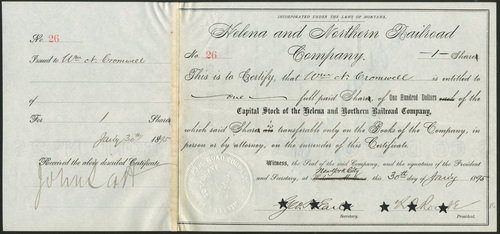 No. 26
Issued to Wm N. Cromwell
of
For 1 Share
Jan'y 30th 1895
Received the above described Certificate
INCORPORATED UNDER THE LAWS OF MONTANA.
Helena and Northern Railroad
Company.
No. 26
-1- Share
This is to Certify, that Wm N. Cromwell is entitled to
one full paid Share, of One Hundred Dollars each of the
Capital Stock of the Helena and Northern Railroad Company,
which said Share is transferable only on the Books of the Company, in
person or by attorney, on the surrender of this Certificate.
Witness, the Seal of the said Company, and the signatures of the President
and Secretary, at New York City, this 30th day of Jan'y 1895
Secretary.
President.